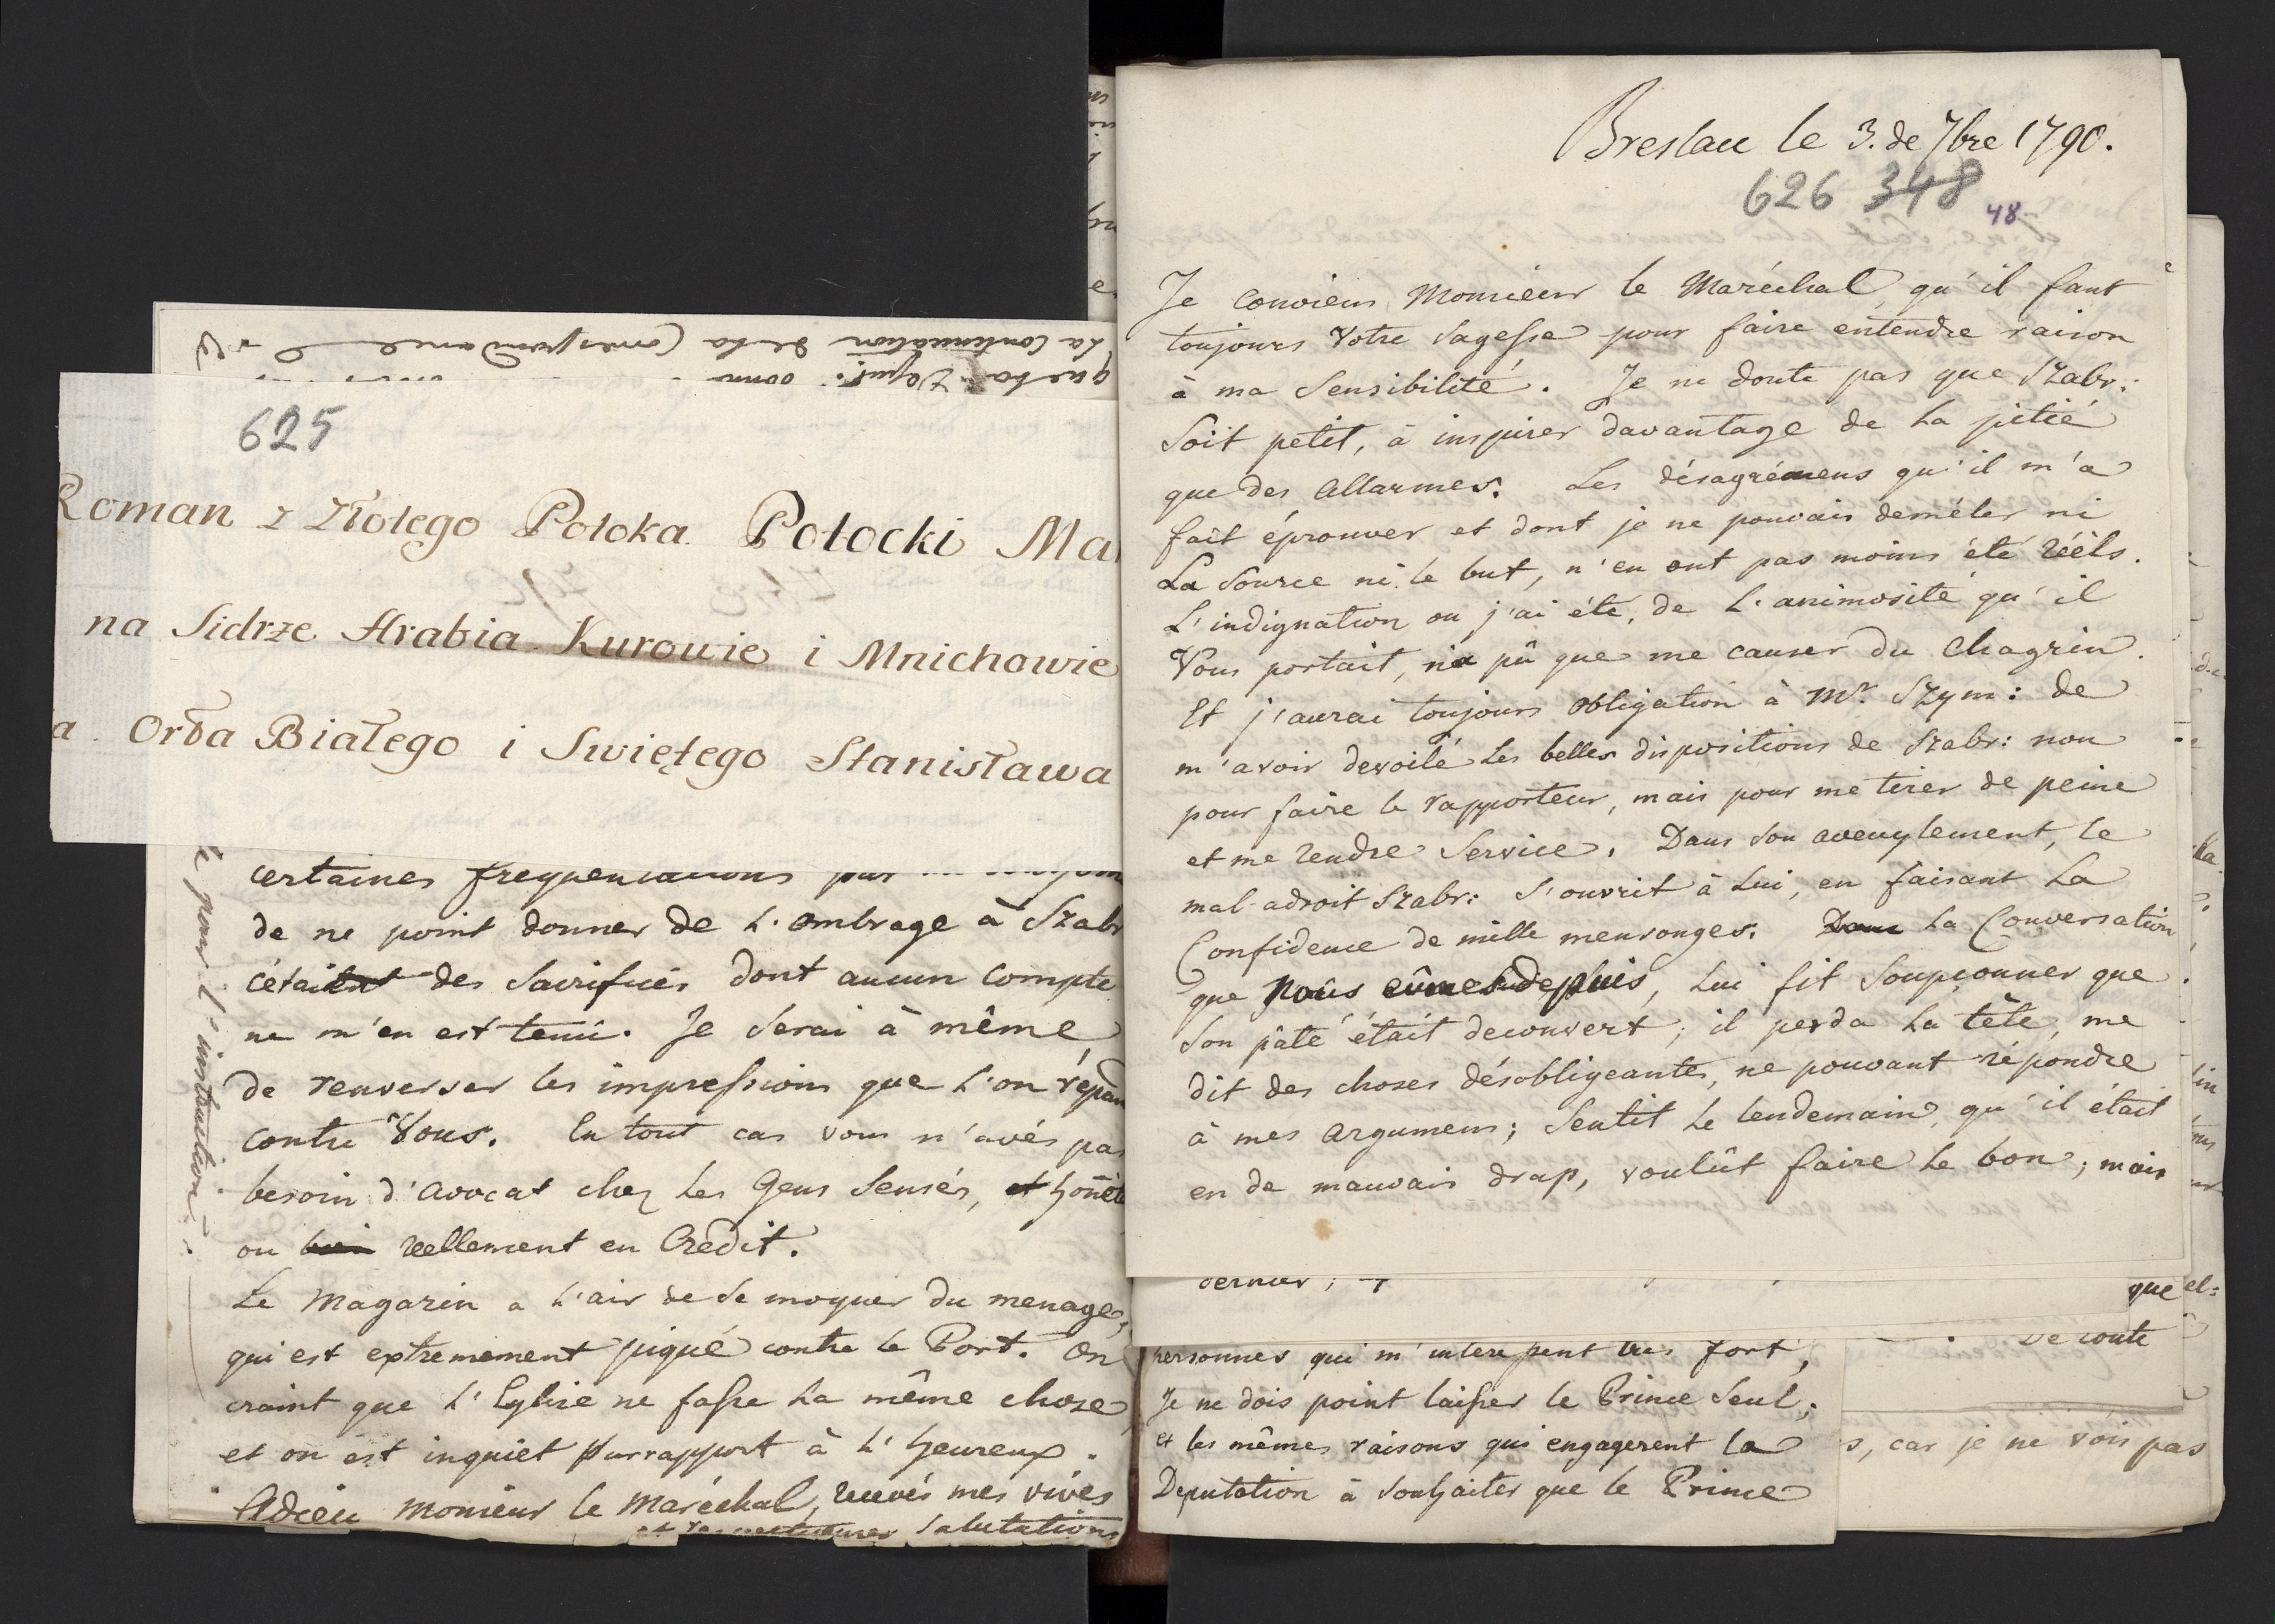 La Continuation de la Correspondance
que la Deput:
625
Roman z Złotego Potoka Potocki Ma
na Sidrze Hrabia Kurowie i Mnichowie
a Orła Białego i Swiętego Stanisława
certaines frequentations
de ne point donner de l'ombrage à Szabr
c'était des Sacrifices dont aucun compte
ne m'en est tenu. Je serai à même
de renverser les impressions que l'on répan
contre Vous. En tout cas vous n'avés pas
besoin d'avocat chez les Gens Sensés, et honêt
ou bien réellement en Credit.
Le Magazin a l'air de se moquer du menage,
qui est extremement piqué contre le Port. On
craint que l'Eglise ne fasse la même chose
et on est inquiet parrapport à l'heureux.
Adieu Monsieur le Maréchal, recevés mes vives
et respectueuses Salutations
pour l'instruction.
Breslau le 3. de 7bre 1790.
626 348 48
Je conviens Monsieur le Maréchal, qu'il faut
toujours Votre Sagesse pour faire entendre raison
à ma Sensibilité. Je ne doute pas que Szabr:
Soit petit, à inspirer davantage de la pitié
que des allarmes. Les désagrémens qu'il m'a
fait éprouver et dont je ne pouvais deméler ni
La Source ni le but, n'en ont pas moins été réèls.
L'indignation ou j'ai été, de l'animosité qu'il
Vous portait, n'a pû que me causer du Chagrin.
Et j'aurai toujours obligation à Mr. Szym: de
m'avoir devoilé les belles dispositions de Szabr: non
pour faire le rapporteur, mais pour me tirer de peine
et me rendre Service. Dans son aveuglement, le
mal-adroit Szabr: s'ouvrit à lui, en faisant la
Confidence de mille mensonges. Dans La Conversation
que Nous eûmes depuis, lui fit Soupçonner que
Son pâté était decouvert; il perda la tête, me
dit des choses désobligeantes, ne pouvant répondre
à mes argumens; Sentit le lendemain, qu'il était
en de mauvais drap, voulût faire le bon; mais
dernier;
que el=
De toute
personnes qui m'interessent tres fort,
Je ne dois point laisser le Prince Seul;
et les mêmes raisons qui engagerent la
s, car je ne vois pas
Deputation à Souhaiter que le Prince